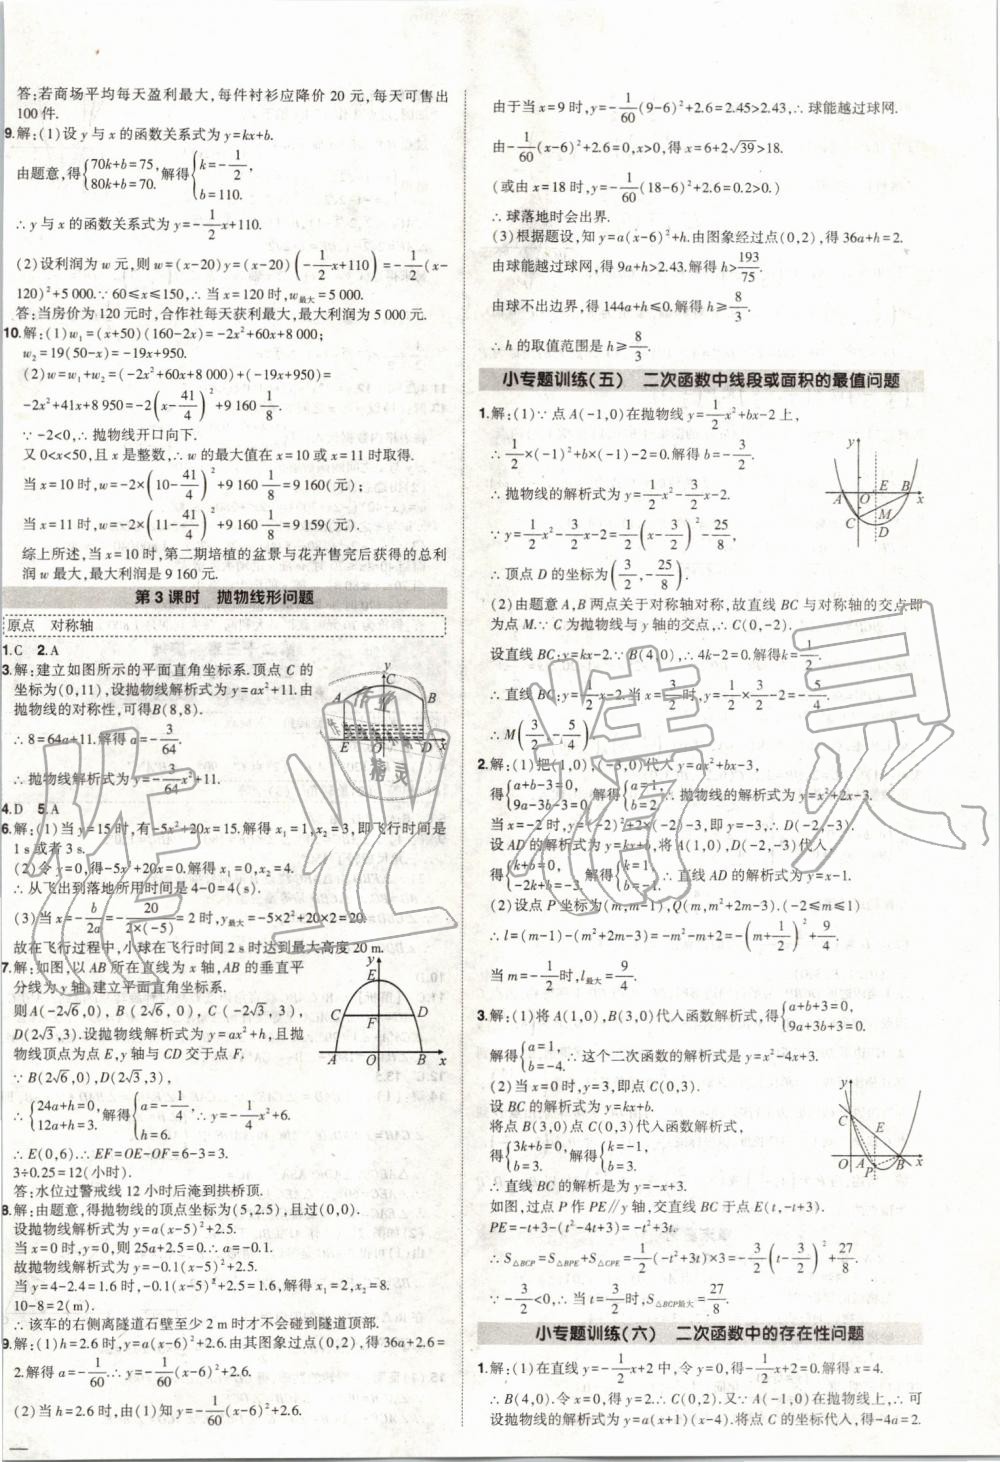 答:若商场平均每天盈利最大,每件衬衫应降价 20 元,每天可售出
100 件.
9.解:(1)设 y 与 x 的函数关系式为 y=kx+b.
由题意,得{70k+b=75, 80k+b=70. 解得{k=-1/2, b=110.
∴y 与 x 的函数关系式为 y=-1/2x+110.
(2)设利润为 w 元,则 w=(x-20)y=(x-20)(-1/2x+110)=-1/2(x-
120)²+5 000.∵60≤x≤150,∴当 x=120 时,w最大=5 000.
答:当房价为 120 元时,合作社每天获利最大,最大利润为 5 000 元.
10.解:(1)w₁=(x+50)(160-2x)=-2x²+60x+8 000;
w₂=19(50-x)=-19x+950.
(2)w=w₁+w₂=(-2x²+60x+8 000)+(-19x+950)=
-2x²+41x+8 950=-2(x-41/4)²+9 160 1/8.
∵-2<0,∴抛物线开口向下.
又 0<x<50,且 x 是整数,∴w 的最大值在 x=10 或 x=11 时取得.
当 x=10 时,w=-2×(10-41/4)²+9 160 1/8=9 160(元);
当 x=11 时,w=-2×(11-41/4)²+9 160 1/8=9 159(元).
综上所述,当 x=10 时,第二期培植的盆景与花卉售完后获得的总利
润 w 最大,最大利润是 9 160 元.
第 3 课时 抛物线形问题
原点 对称轴
1.C 2.A
3.解:建立如图所示的平面直角坐标系.顶点 C 的
坐标为(0,11),设抛物线解析式为 y=ax²+11.由
抛物线的对称性,可得 B(8,8).
∴8=64a+11.解得 a=-3/64.
∴抛物线解析式为 y=-3/64x²+11.
y
C
A
B
E
O
D
x
4.D 5.A
6.解:(1)当 y=15 时,有-5x²+20x=15.解得 x₁=1,x₂=3,即飞行时间是
1 s 或者 3 s.
(2)令 y=0,得-5x²+20x=0.解得 x₁=0,x₂=4.
∴从飞出到落地所用时间是 4-0=4(s).
(3)当 x=-b/2a=-20/2×(-5)=2 时,y最大=-5×2²+20×2=20.
故在飞行过程中,小球在飞行时间 2 s 时达到最大高度 20 m.
7.解:如图,以 AB 所在直线为 x 轴,AB 的垂直平
分线为 y 轴,建立平面直角坐标系.
则 A(-2√6,0),B(2√6,0),C(-2√3,3),
D(2√3,3).设抛物线解析式为 y=ax²+h,且抛
物线顶点为点 E,y 轴与 CD 交于点 F.
∵B(2√6,0),D(2√3,3),
∴{24a+h=0, 12a+h=3. 解得{a=-1/4, h=6. ∴y=-1/4x²+6.
∴E(0,6).∴EF=OE-OF=6-3=3.
3÷0.25=12(小时).
答:水位过警戒线 12 小时后淹到拱桥顶.
y
E
C
F
D
A
O
B
x
8.解:由题意,得抛物线的顶点坐标为(5,2.5),且过(0,0).
设抛物线解析式为 y=a(x-5)²+2.5.
当 x=0 时,y=0,则 25a+2.5=0.∴a=-0.1.
故抛物线解析式为 y=-0.1(x-5)²+2.5.
当 y=4-2.4=1.6 时,-0.1(x-5)²+2.5=1.6,解得 x₁=2,x₂=8.
10-8=2(m).
∴该车的右侧离隧道石壁至少 2 m 时才不会碰到隧道顶部.
9.解:(1)h=2.6 时,y=a(x-6)²+2.6.由其图象过点(0,2),得 36a+2.6=
2.解得 a=-1/60.∴y=-1/60(x-6)²+2.6.
(2)当 h=2.6 时,由(1)知 y=-1/60(x-6)²+2.6.
由于当 x=9 时,y=-1/60(9-6)²+2.6=2.45>2.43,∴球能越过球网.
由-1/60(x-6)²+2.6=0,x>0,得 x=6+2√39>18.
(或由 x=18 时,y=-1/60(18-6)²+2.6=0.2>0.)
∴球落地时会出界.
(3)根据题设,知 y=a(x-6)²+h.由图象经过点(0,2),得 36a+h=2.
由球能越过球网,得 9a+h>2.43.解得 h>193/75.
由球不出边界,得 144a+h≤0.解得 h≥8/3.
∴h 的取值范围是 h≥8/3.
小专题训练(五) 二次函数中线段或面积的最值问题
1.解:(1)∵点 A(-1,0)在抛物线 y=1/2x²+bx-2 上,
∴1/2×(-1)²+b×(-1)-2=0.解得 b=-3/2.
∴抛物线的解析式为 y=1/2x²-3/2x-2.
∵y=1/2x²-3/2x-2=1/2(x-3/2)²-25/8,
∴顶点 D 的坐标为(3/2,-25/8).
y
A
O
E
B
x
C
M
D
(2)由题意 A,B 两点关于对称轴对称,故直线 BC 与对称轴的交点即
为点 M.∵C 为抛物线与 y 轴的交点,∴C(0,-2).
设直线 BC:y=kx-2.∵B(4,0),∴4k-2=0.解得 k=1/2.
∴直线 BC:y=1/2x-2.当 x=3/2时,y=1/2×3/2-2=-5/4,
∴M(3/2,-5/4).
2.解:(1)把(1,0),(-3,0)代入 y=ax²+bx-3,
得{a+b-3=0, 9a-3b-3=0. 解得{a=1, b=2. ∴抛物线的解析式为 y=x²+2x-3.
当 x=-2 时,y=(-2)²+2×(-2)-3,即 y=-3,∴D(-2,-3).
设 AD 的解析式为 y=kx+b,将 A(1,0),D(-2,-3)代入,
得{k+b=0, -2k+b=-3. 解得{k=1, b=-1. ∴直线 AD 的解析式为 y=x-1.
(2)设点 P 坐标为(m,m-1),Q(m,m²+2m-3).(-2≤m≤1)
∴l=(m-1)-(m²+2m-3)=-m²-m+2=-(m+1/2)²+9/4.
当 m=-1/2时,l最大=9/4.
3.解:(1)将 A(1,0),B(3,0)代入函数解析式,得{a+b+3=0, 9a+3b+3=0.
解得{a=1, b=-4. ∴这个二次函数的解析式是 y=x²-4x+3.
(2)当 x=0 时,y=3,即点 C(0,3).
设 BC 的解析式为 y=kx+b.
将点 B(3,0)点 C(0,3)代入函数解析式,
得{3k+b=0, b=3. 解得{k=-1, b=3.
∴直线 BC 的解析式是为 y=-x+3.
y
C
E
O
A
P
B
x
如图,过点 P 作 PE∥y 轴,交直线 BC 于点 E(t,-t+3).
PE=-t+3-(t²-4t+3)=-t²+3t.
∴S△BCP=S△BPE+S△CPE=1/2(-t²+3t)×3=-3/2(t-3/2)²+27/8.
∵-3/2<0,∴当 t=3/2时,S△BCP最大=27/8.
小专题训练(六) 二次函数中的存在性问题
1.解:(1)在直线 y=-1/2x+2 中,令 y=0,得-1/2x+2=0.解得 x=4.
∴B(4,0).令 x=0,得 y=2.∴C(0,2).又∵A(-1,0)在抛物线上,∴可
设抛物线的解析式为 y=a(x+1)(x-4).将点 C 的坐标代入,得-4a=2.
作业精灵